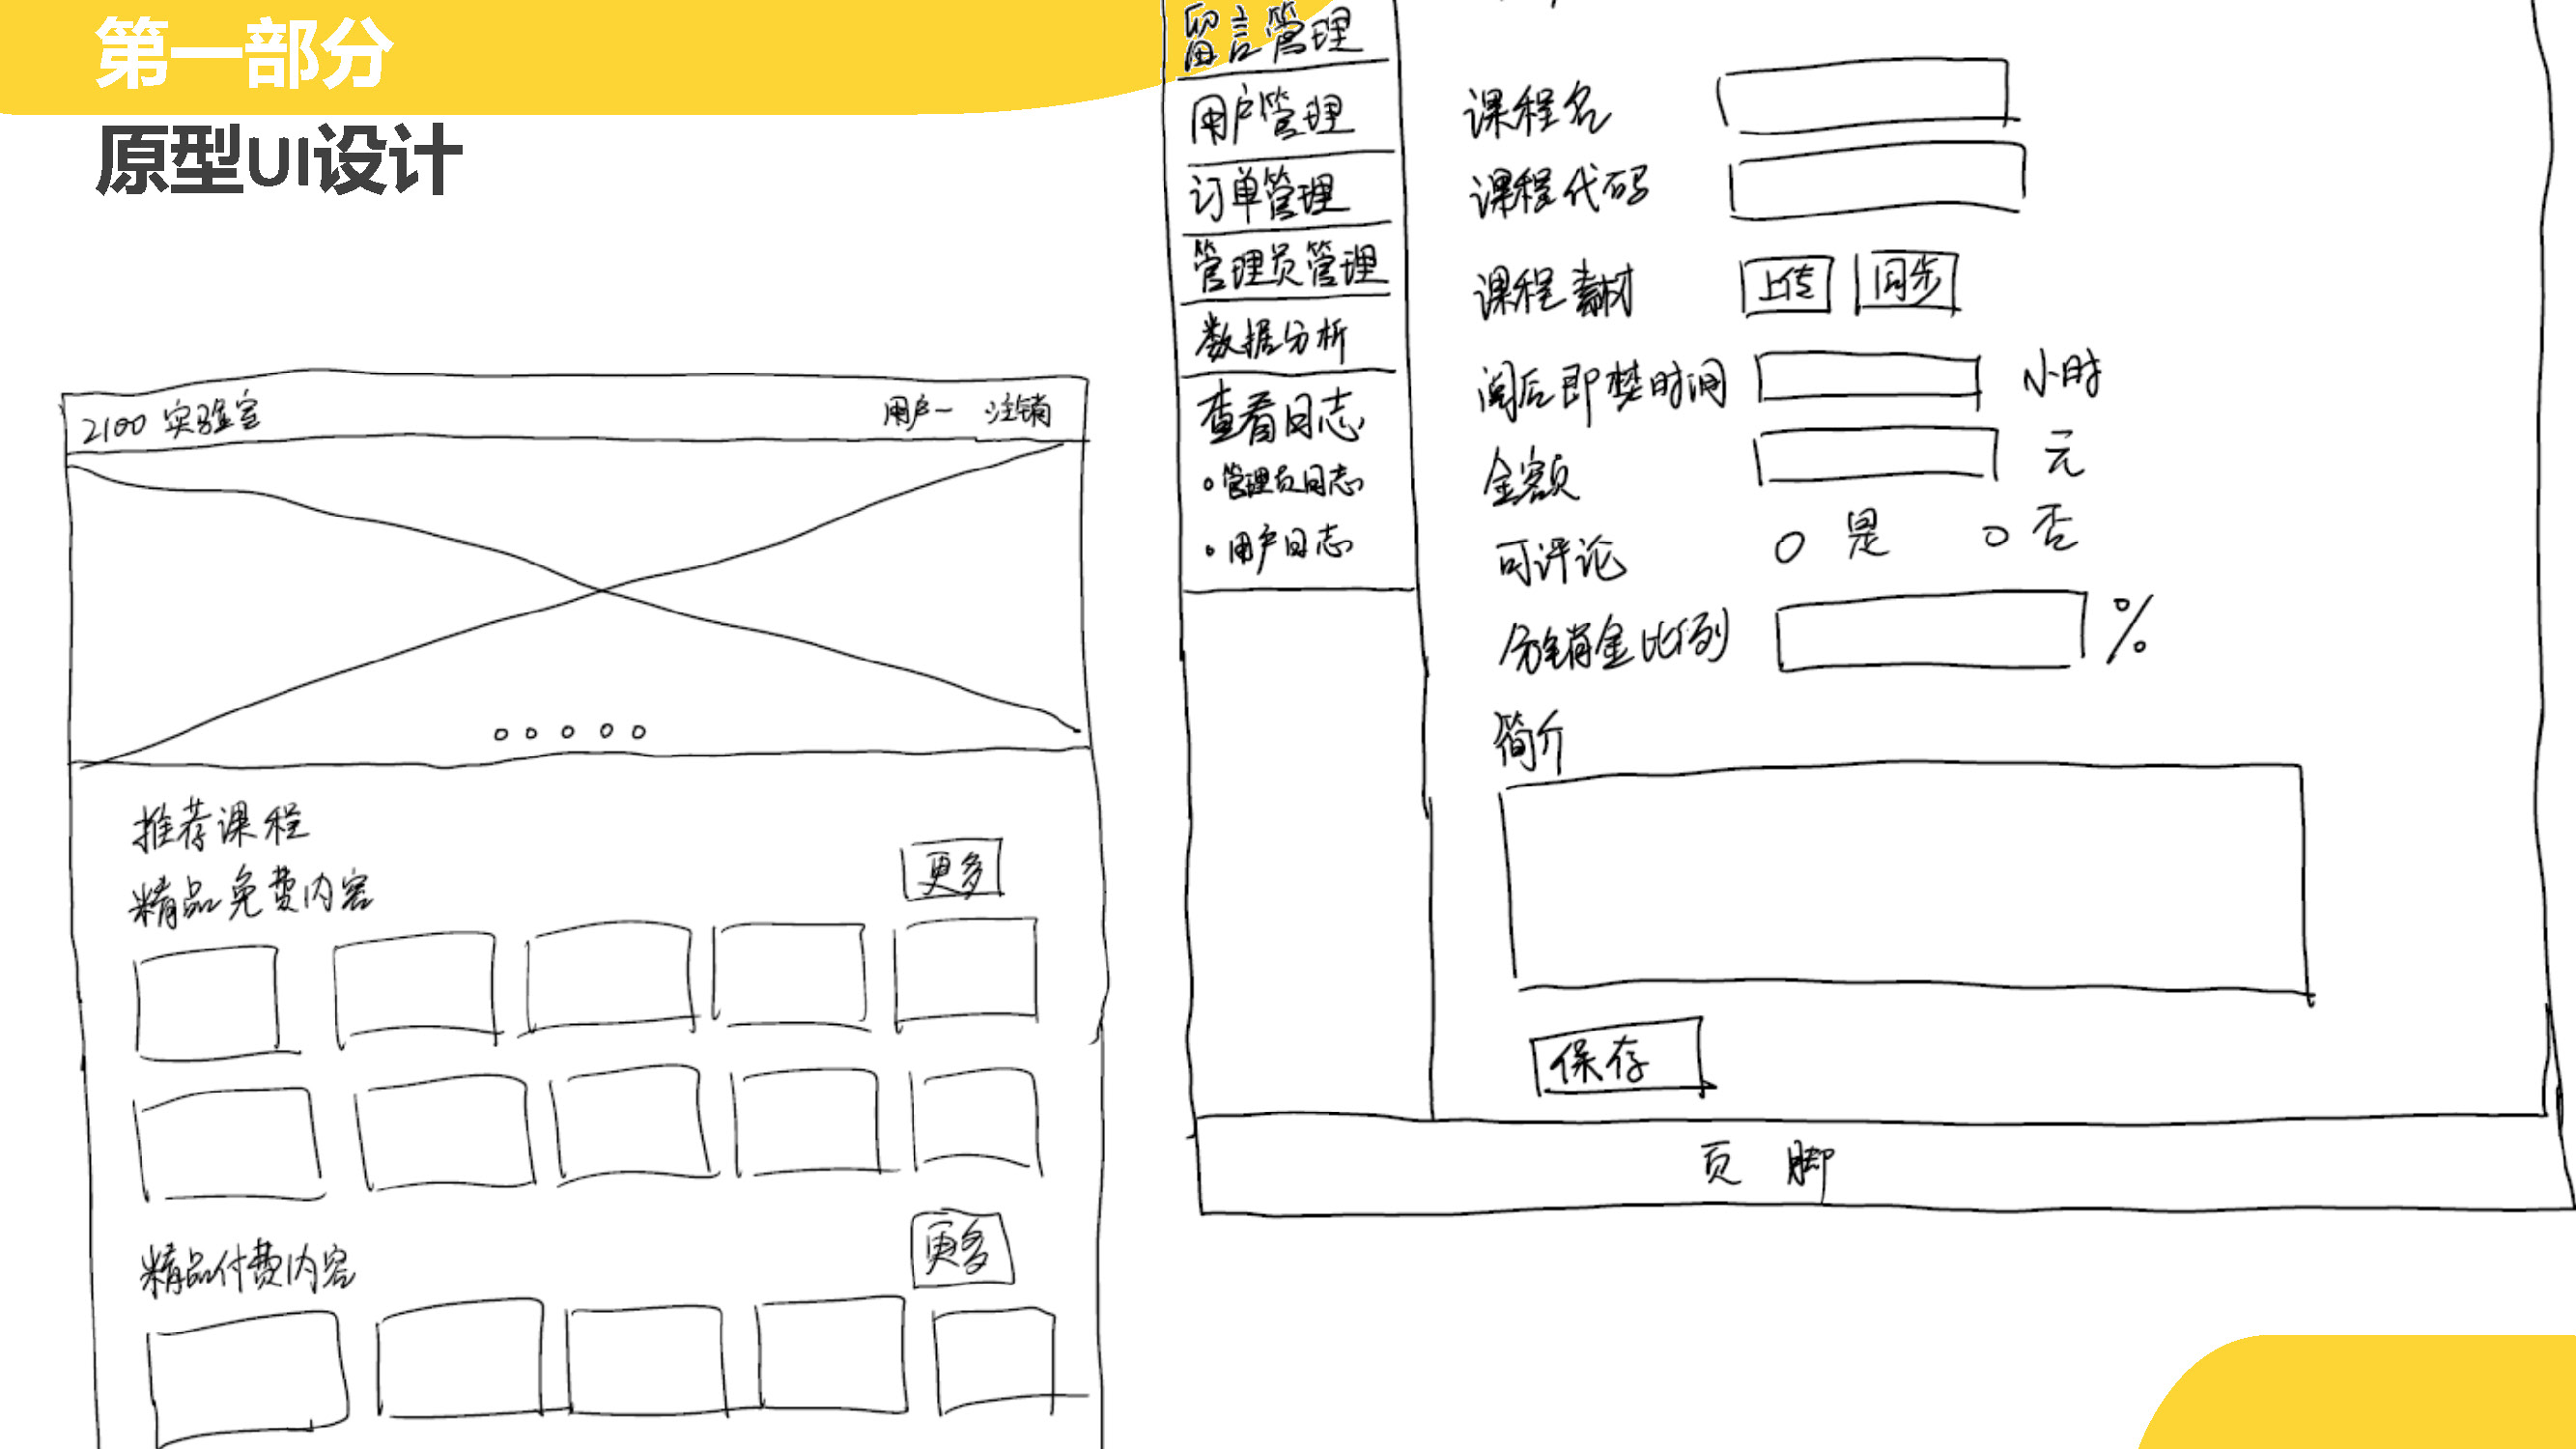 第一部分
原型UI设计
2100 实验室 用户一 注销
推荐课程
精品免费内容 更多
精品付费内容 更多
留言管理
用户管理
订单管理
管理员管理
数据分析
查看日志
管理员日志
用户日志
课程名
课程代码
课程素材 上传 同步
阅后即焚时间 小时
金额 元
可评论 是 否
分销金比例 %
简介
保存
页脚